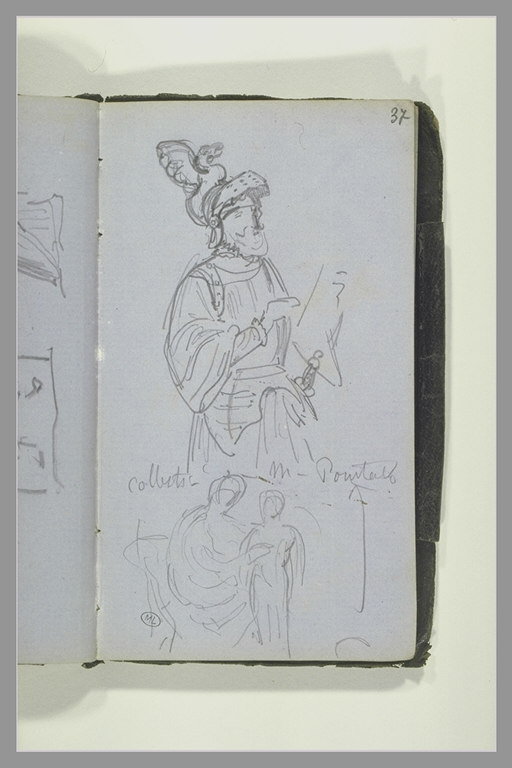 37
collect. M- Pourtalès
ML